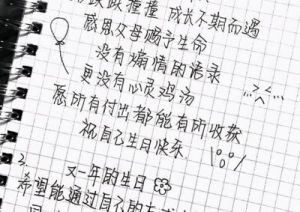 跌跌撞撞 成长不期而遇
感恩父母赐予生命
没有煽情的语录
更没有心灵鸡汤
愿所有付出都能有所收获
祝自己生日快乐
2.
又一年的生日
希望能通过自己的